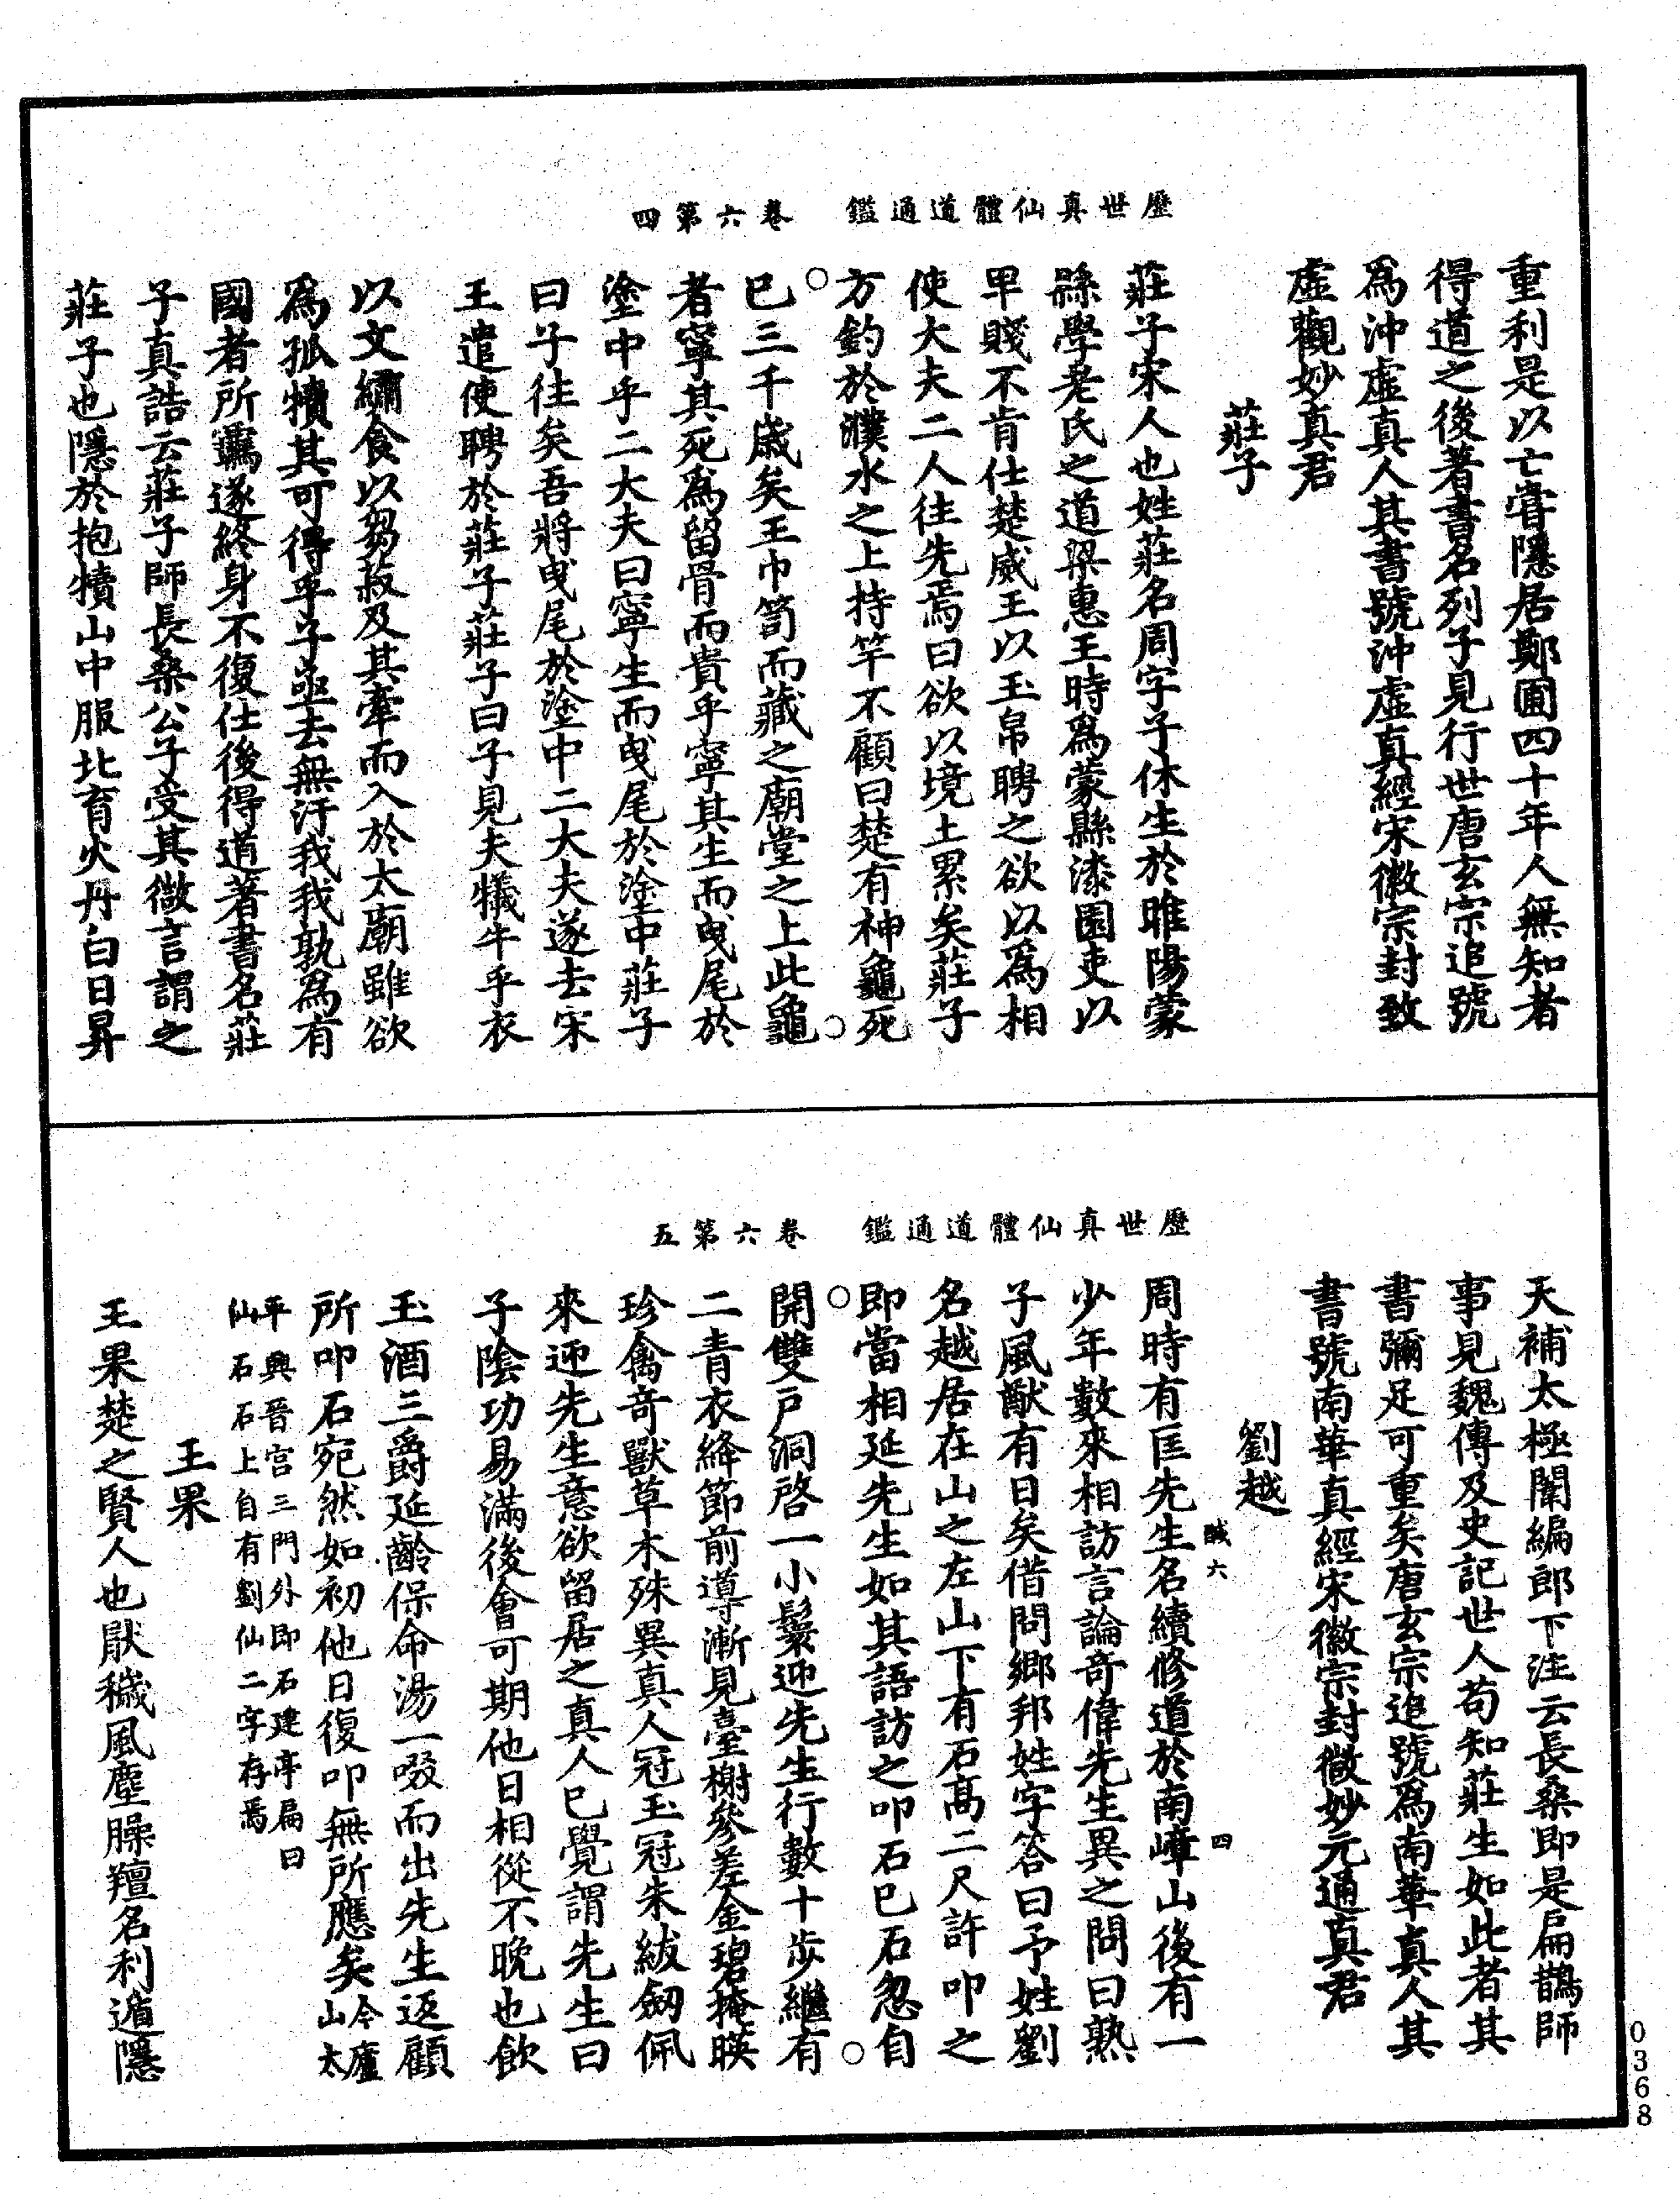 歷世真仙體道通鑑　卷六第四
重利是以亡嘗隱居鄭圃四十年人無知者
得道之後著書名列子見行世唐玄宗追號
爲沖虛真人其書號沖虛真經宋徽宗封致
虛觀妙真君
莊子
莊子宋人也姓莊名周字子休生於睢陽蒙
縣學老氏之道梁惠王時爲蒙縣漆園吏以
卑賤不肯仕楚威王以玉帛聘之欲以爲相
使大夫二人往先焉曰欲以境土累矣莊子
方釣於濮水之上持竿不顧曰楚有神龜死
已三千歲矣王巾笥而藏之廟堂之上此龜
者寧其死爲留骨而貴乎寧其生而曳尾於
塗中乎二大夫曰寧生而曳尾於塗中莊子
曰子往矣吾將曳尾於塗中二大夫遂去宋
王遣使聘於莊子莊子曰子見夫犧牛乎衣
以文繡食以芻菽及其牽而入於太廟雖欲
爲孤犢其可得乎子亟去無汙我我孰爲有
國者所羈遂終身不復仕後得道著書名莊
子真誥云莊子師長桑公子受其微言謂之
莊子也隱於抱犢山中服北育火丹白日昇
歷世真仙體道通鑑　卷六第五
天補太極闈編郎下注云長桑即是扁鵲師
事見魏傳及史記世人苟知莊生如此者其
書彌足可重矣唐玄宗追號爲南華真人其
書號南華真經宋徽宗封微妙元通真君
劉越
鹹六　四
周時有匡先生名續修道於南嶂山後有一
少年數來相訪言論奇偉先生異之問曰熟
子風猷有日矣借問鄉邦姓字答曰予姓劉
名越居在山之左山下有石高二尺許叩之
即當相延先生如其語訪之叩石已石忽自
開雙戶洞啓一小鬟迎先生行數十步繼有
二青衣絳節前導漸見臺榭參差金碧掩映
珍禽奇獸草木殊異真人冠玉冠朱紱劒佩
來迎先生意欲留居之真人已覺謂先生曰
子陰功易滿後會可期他日相從不晚也飲
玉酒三爵延齡保命湯一啜而出先生返顧
所叩石宛然如初他日復叩無所應矣今廬
山太
平興晉宫三門外即石建亭扁曰
仙石石上自有劉仙二字存焉
王果
王果楚之賢人也厭穢風塵臊羶名利遁隱
0368